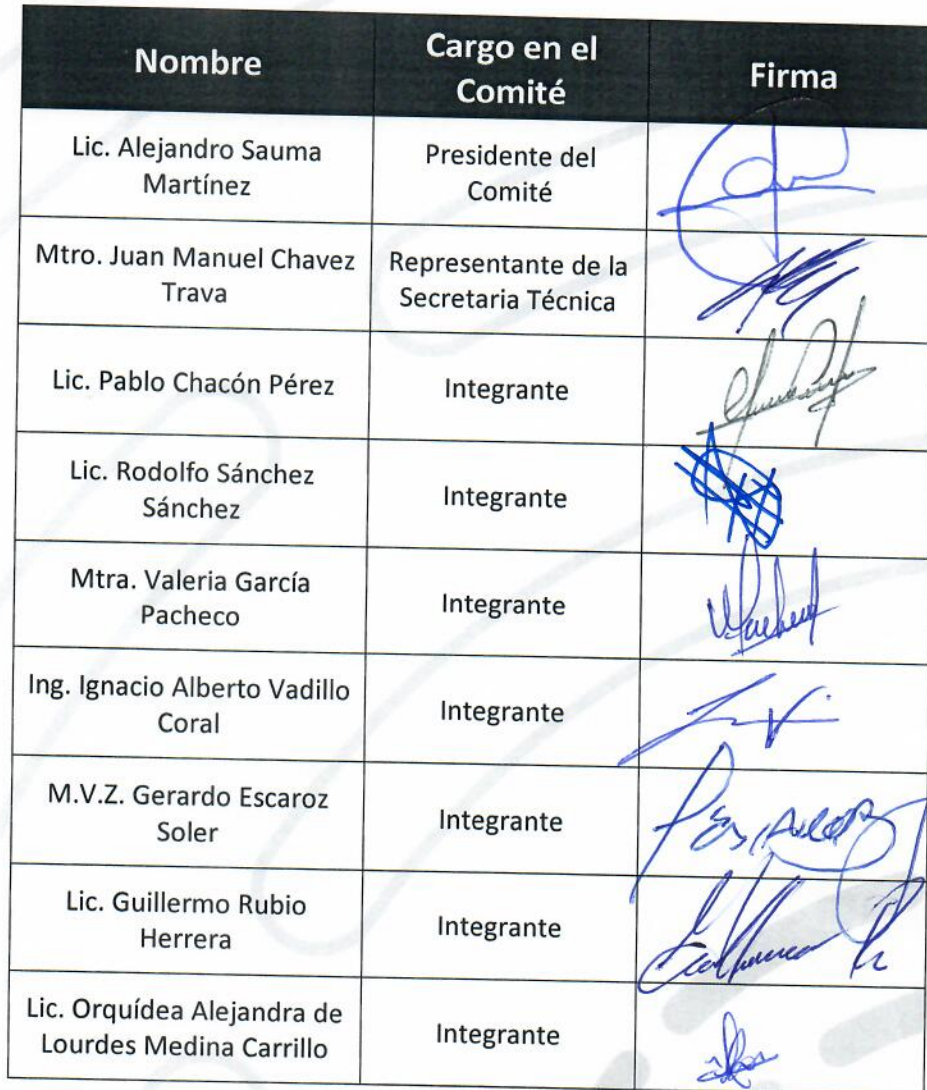 Nombre
Cargo en el
Comité
Firma
Lic. Alejandro Sauma
Martínez
Presidente del
Comité
Mtro. Juan Manuel Chavez
Trava
Representante de la
Secretaria Técnica
Lic. Pablo Chacón Pérez
Integrante
Lic. Rodolfo Sánchez
Sánchez
Integrante
Mtra. Valeria García
Pacheco
Integrante
Ing. Ignacio Alberto Vadillo
Coral
Integrante
M.V.Z. Gerardo Escaroz
Soler
Integrante
Lic. Guillermo Rubio
Herrera
Integrante
Lic. Orquídea Alejandra de
Lourdes Medina Carrillo
Integrante